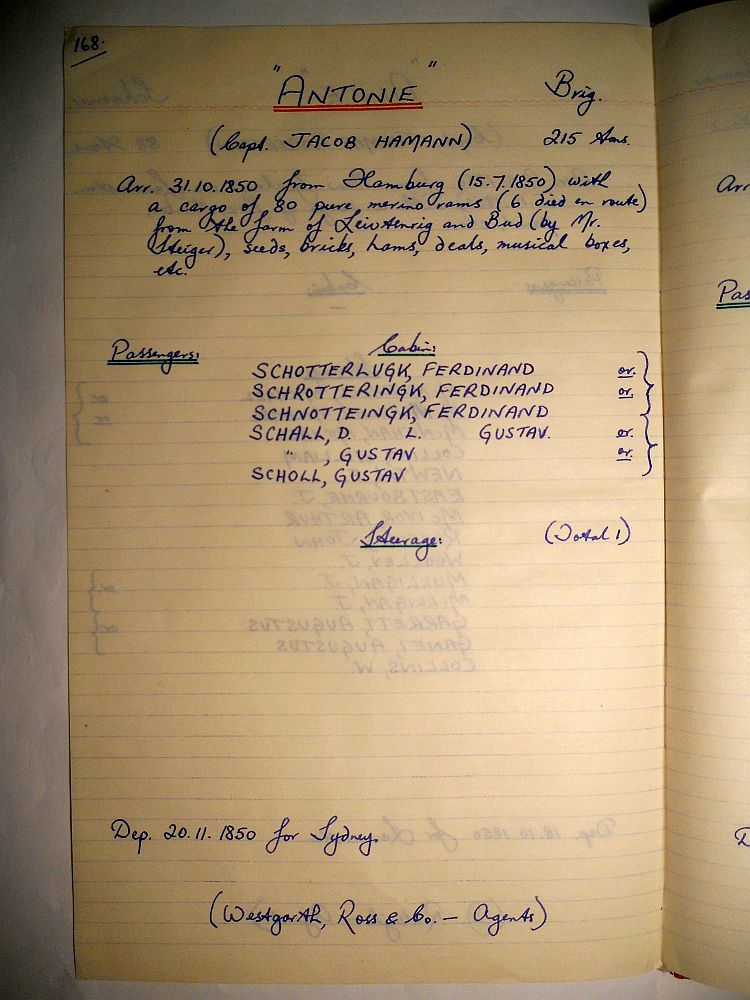 168.
"ANTONIE" Brig.
(Capt. JACOB HAMANN) 215 tons.
Arr. 31.10.1850 from Hamburg (15.7.1850) with
a cargo of 80 pure merino rams (6 died en route)
from the farm of Leivtenrig and Bud (by Mr.
Steiger), seeds, bricks, hams, deals, musical boxes,
etc.
Passengers: Cabin:
SCHOTTERLUGK, FERDINAND or.
SCHROTTERINGK, FERDINAND or.
SCHNOTTEINGK, FERDINAND
SCHALL, D. L. GUSTAV. or.
" , GUSTAV or.
SCHOLL, GUSTAV
Steerage: (Total 1)
Dep. 20.11.1850 for Sydney.
(Westgarth, Ross & Co. — Agents)
Arr
Pas
D